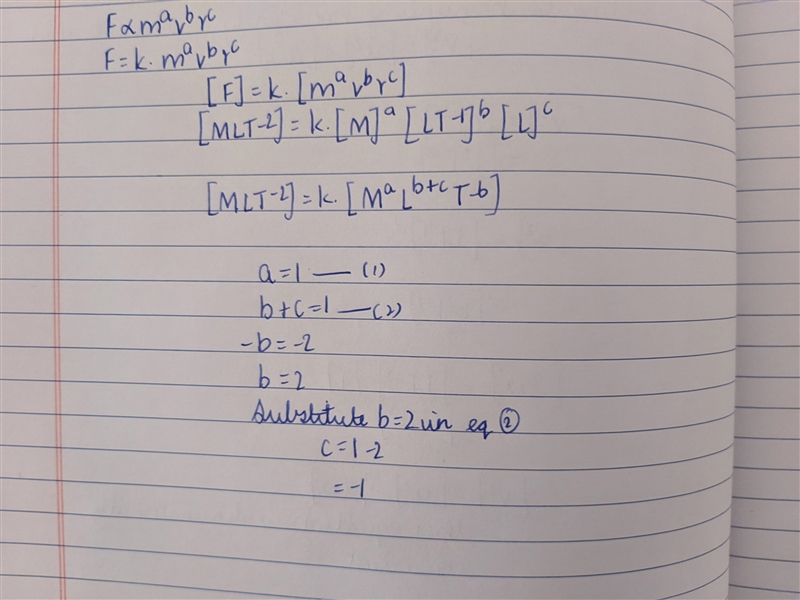 F∝mᵃvᵇrᶜ
F=k.mᵃvᵇrᶜ
[F]=k.[mᵃvᵇrᶜ]
[MLT⁻²]=k.[M]ᵃ[LT⁻¹]ᵇ[L]ᶜ
[MLT⁻²]=k.[MᵃLᵇ⁺ᶜT⁻ᵇ]
a=1 — (1)
b+c=1 — (2)
-b=-2
b=2
Substitute b=2 in eq ②
c=1-2
=-1